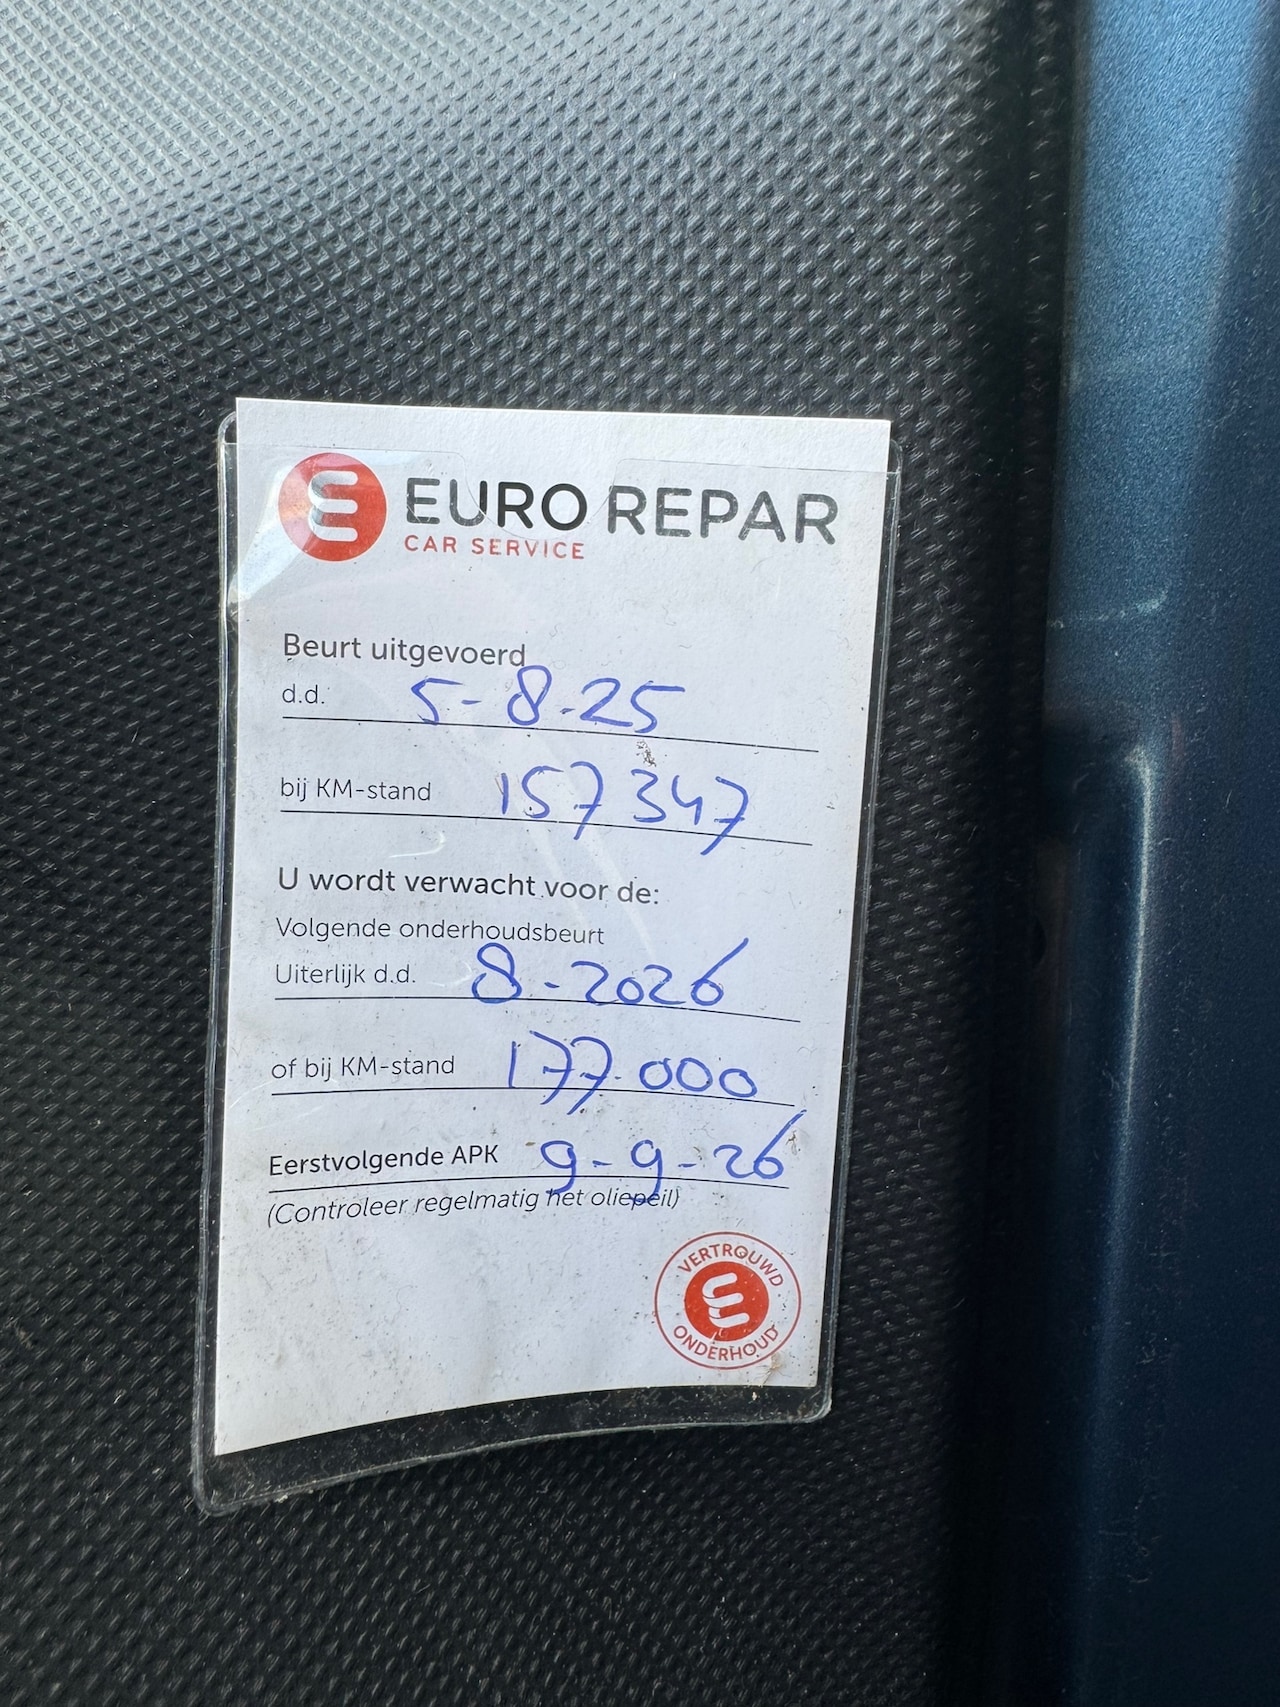 EURO REPAR
CAR SERVICE
Beurt uitgevoerd
d.d. 5-8-25
bij KM-stand 157347
U wordt verwacht voor de:
Volgende onderhoudsbeurt
Uiterlijk d.d. 8-2026
of bij KM-stand 177.000
Eerstvolgende APK 9-9-26
(Controleer regelmatig het oliepeil)
VERTROUWD
ONDERHOUD